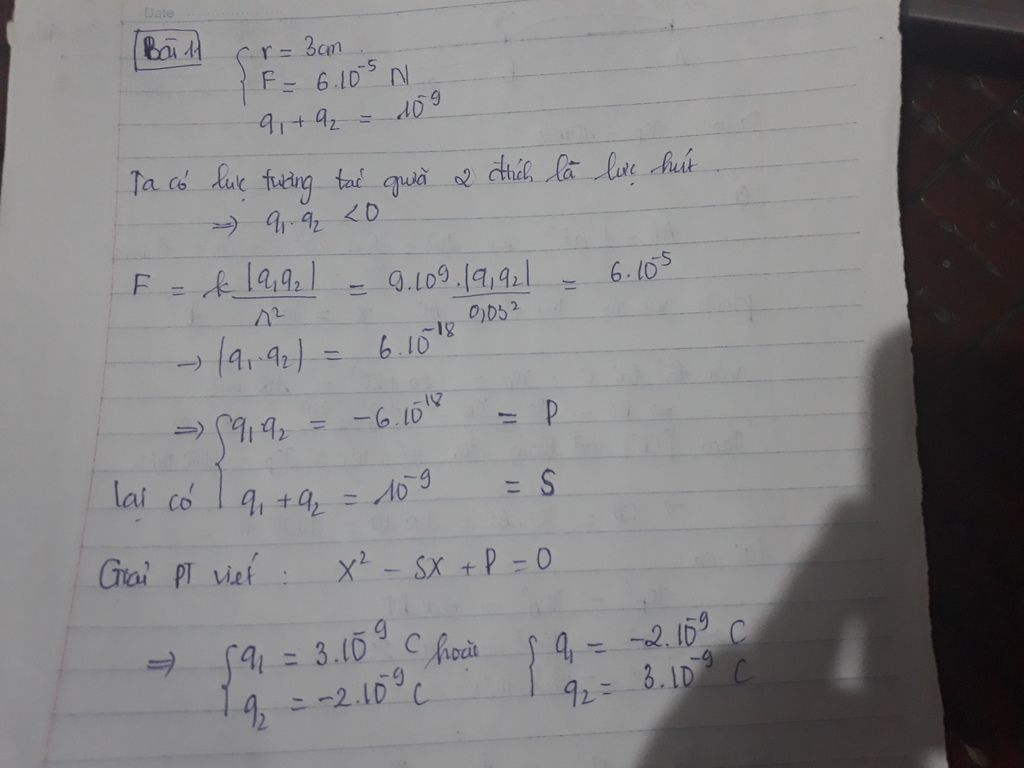 Date
Bài 11
r = 3cm
F = 6.10⁻⁵ N
q₁ + q₂ = 10⁻⁹
Ta có lực tương tác giữa 2 đtích là lực hút.
⇒ q₁.q₂ < 0
F = k |q₁q₂| / r² = 9.10⁹.|q₁q₂| / 0,03² = 6.10⁻⁵
→ |q₁.q₂| = 6.10⁻¹⁸
⇒ q₁.q₂ = -6.10⁻¹⁸ = P
lại có q₁ + q₂ = 10⁻⁹ = S
Giải PT viet : X² - SX + P = 0
⇒ q₁ = 3.10⁻⁹ C hoặc q₁ = -2.10⁻⁹ C
q₂ = -2.10⁻⁹ C q₂ = 3.10⁻⁹ C